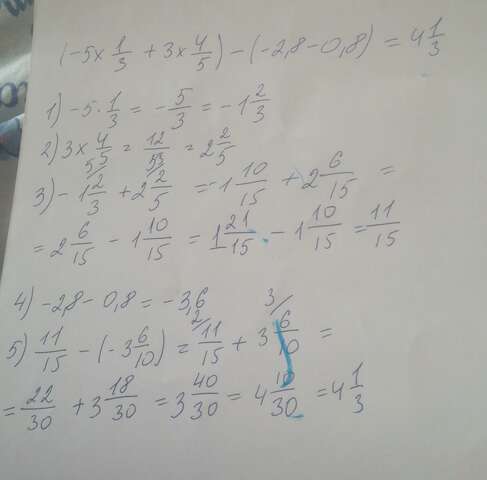 (-5×1/3 + 3×4/5) - (-2,8-0,8) = 4 1/3
1) -5·1/3 = -5/3 = -1 2/3
2) 3×4/5 = 12/5 = 2 2/5
3) -1 2/3 + 2 2/5 = -1 10/15 + 2 6/15 =
= 2 6/15 - 1 10/15 = 1 21/15 - 1 10/15 = 11/15
4) -2,8-0,8 = -3,6
5) 11/15 - (-3 6/10) = 11/15 + 3 6/10 =
= 22/30 + 3 18/30 = 3 40/30 = 4 10/30 = 4 1/3